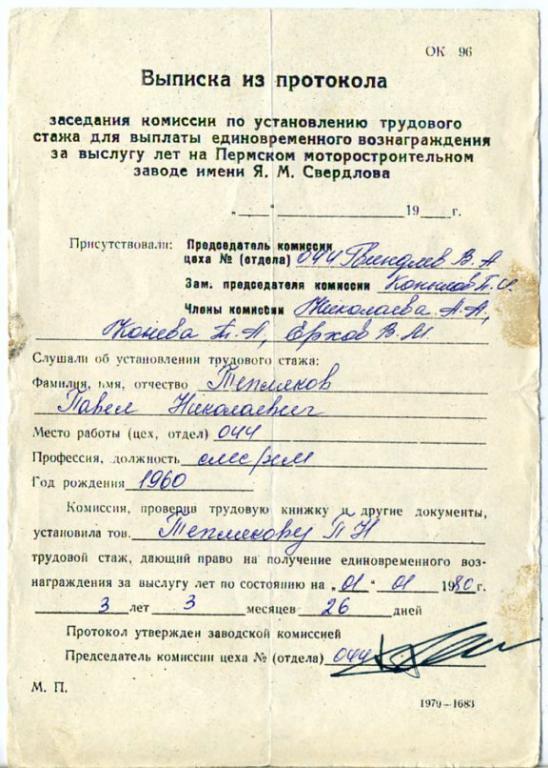 ОК 96
Выписка из протокола
заседания комиссии по установлению трудового
стажа для выплаты единовременного вознаграждения
за выслугу лет на Пермском моторостроительном
заводе имени Я. М. Свердлова
„ “ 19 г.
Присутствовали: Председатель комиссии
цеха № (отдела) 044 В. А
Зам. председателя комиссии
Члены комиссии Николаева А. А.,
Конева Т. А, Ерхов В. М.
Слушали об установлении трудового стажа:
Фамилия, имя, отчество Тепляков
Павел Николаевич
Место работы (цех, отдел) 044
Профессия, должность
Год рождения 1960
Комиссия, проверив трудовую книжку и другие документы,
установила тов. Теплякову П Н
трудовой стаж, дающий право на получение единовременного воз-
награждения за выслугу лет по состоянию на „01“ 01 1980 г.
3 лет 3 месяцев 26 дней
Протокол утвержден заводской комиссией
Председатель комиссии цеха № (отдела) 044
М. П.
1979—1683